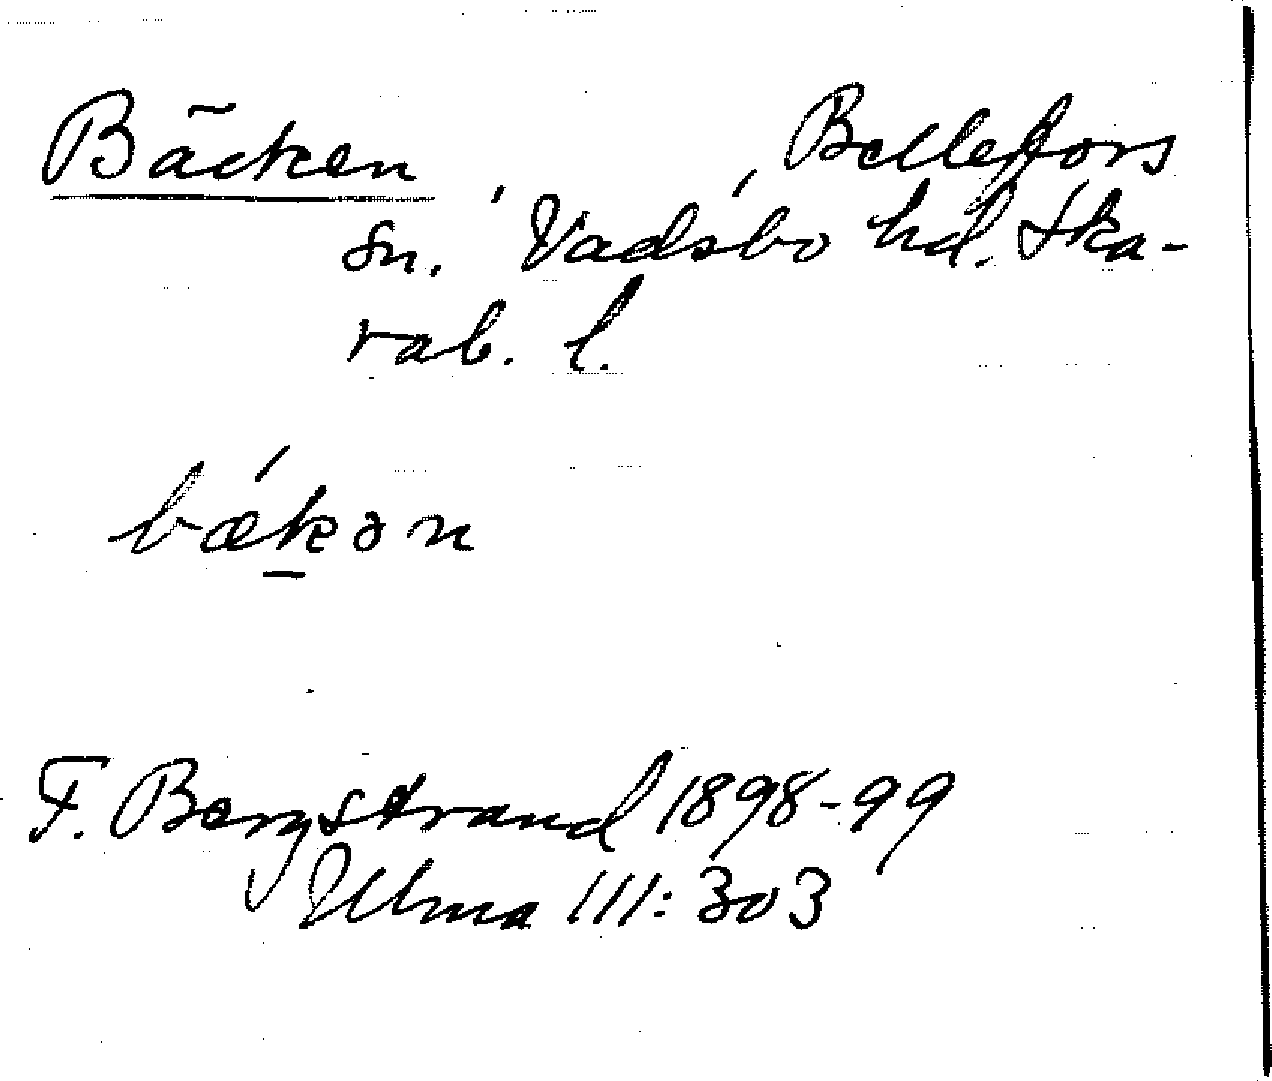 Bäcken, Bellefors
sn. Vadsbo hd. Ska-
rab. l.
bǽk̠ən
F. Bergstrand 1898-99
Ulma 111:303